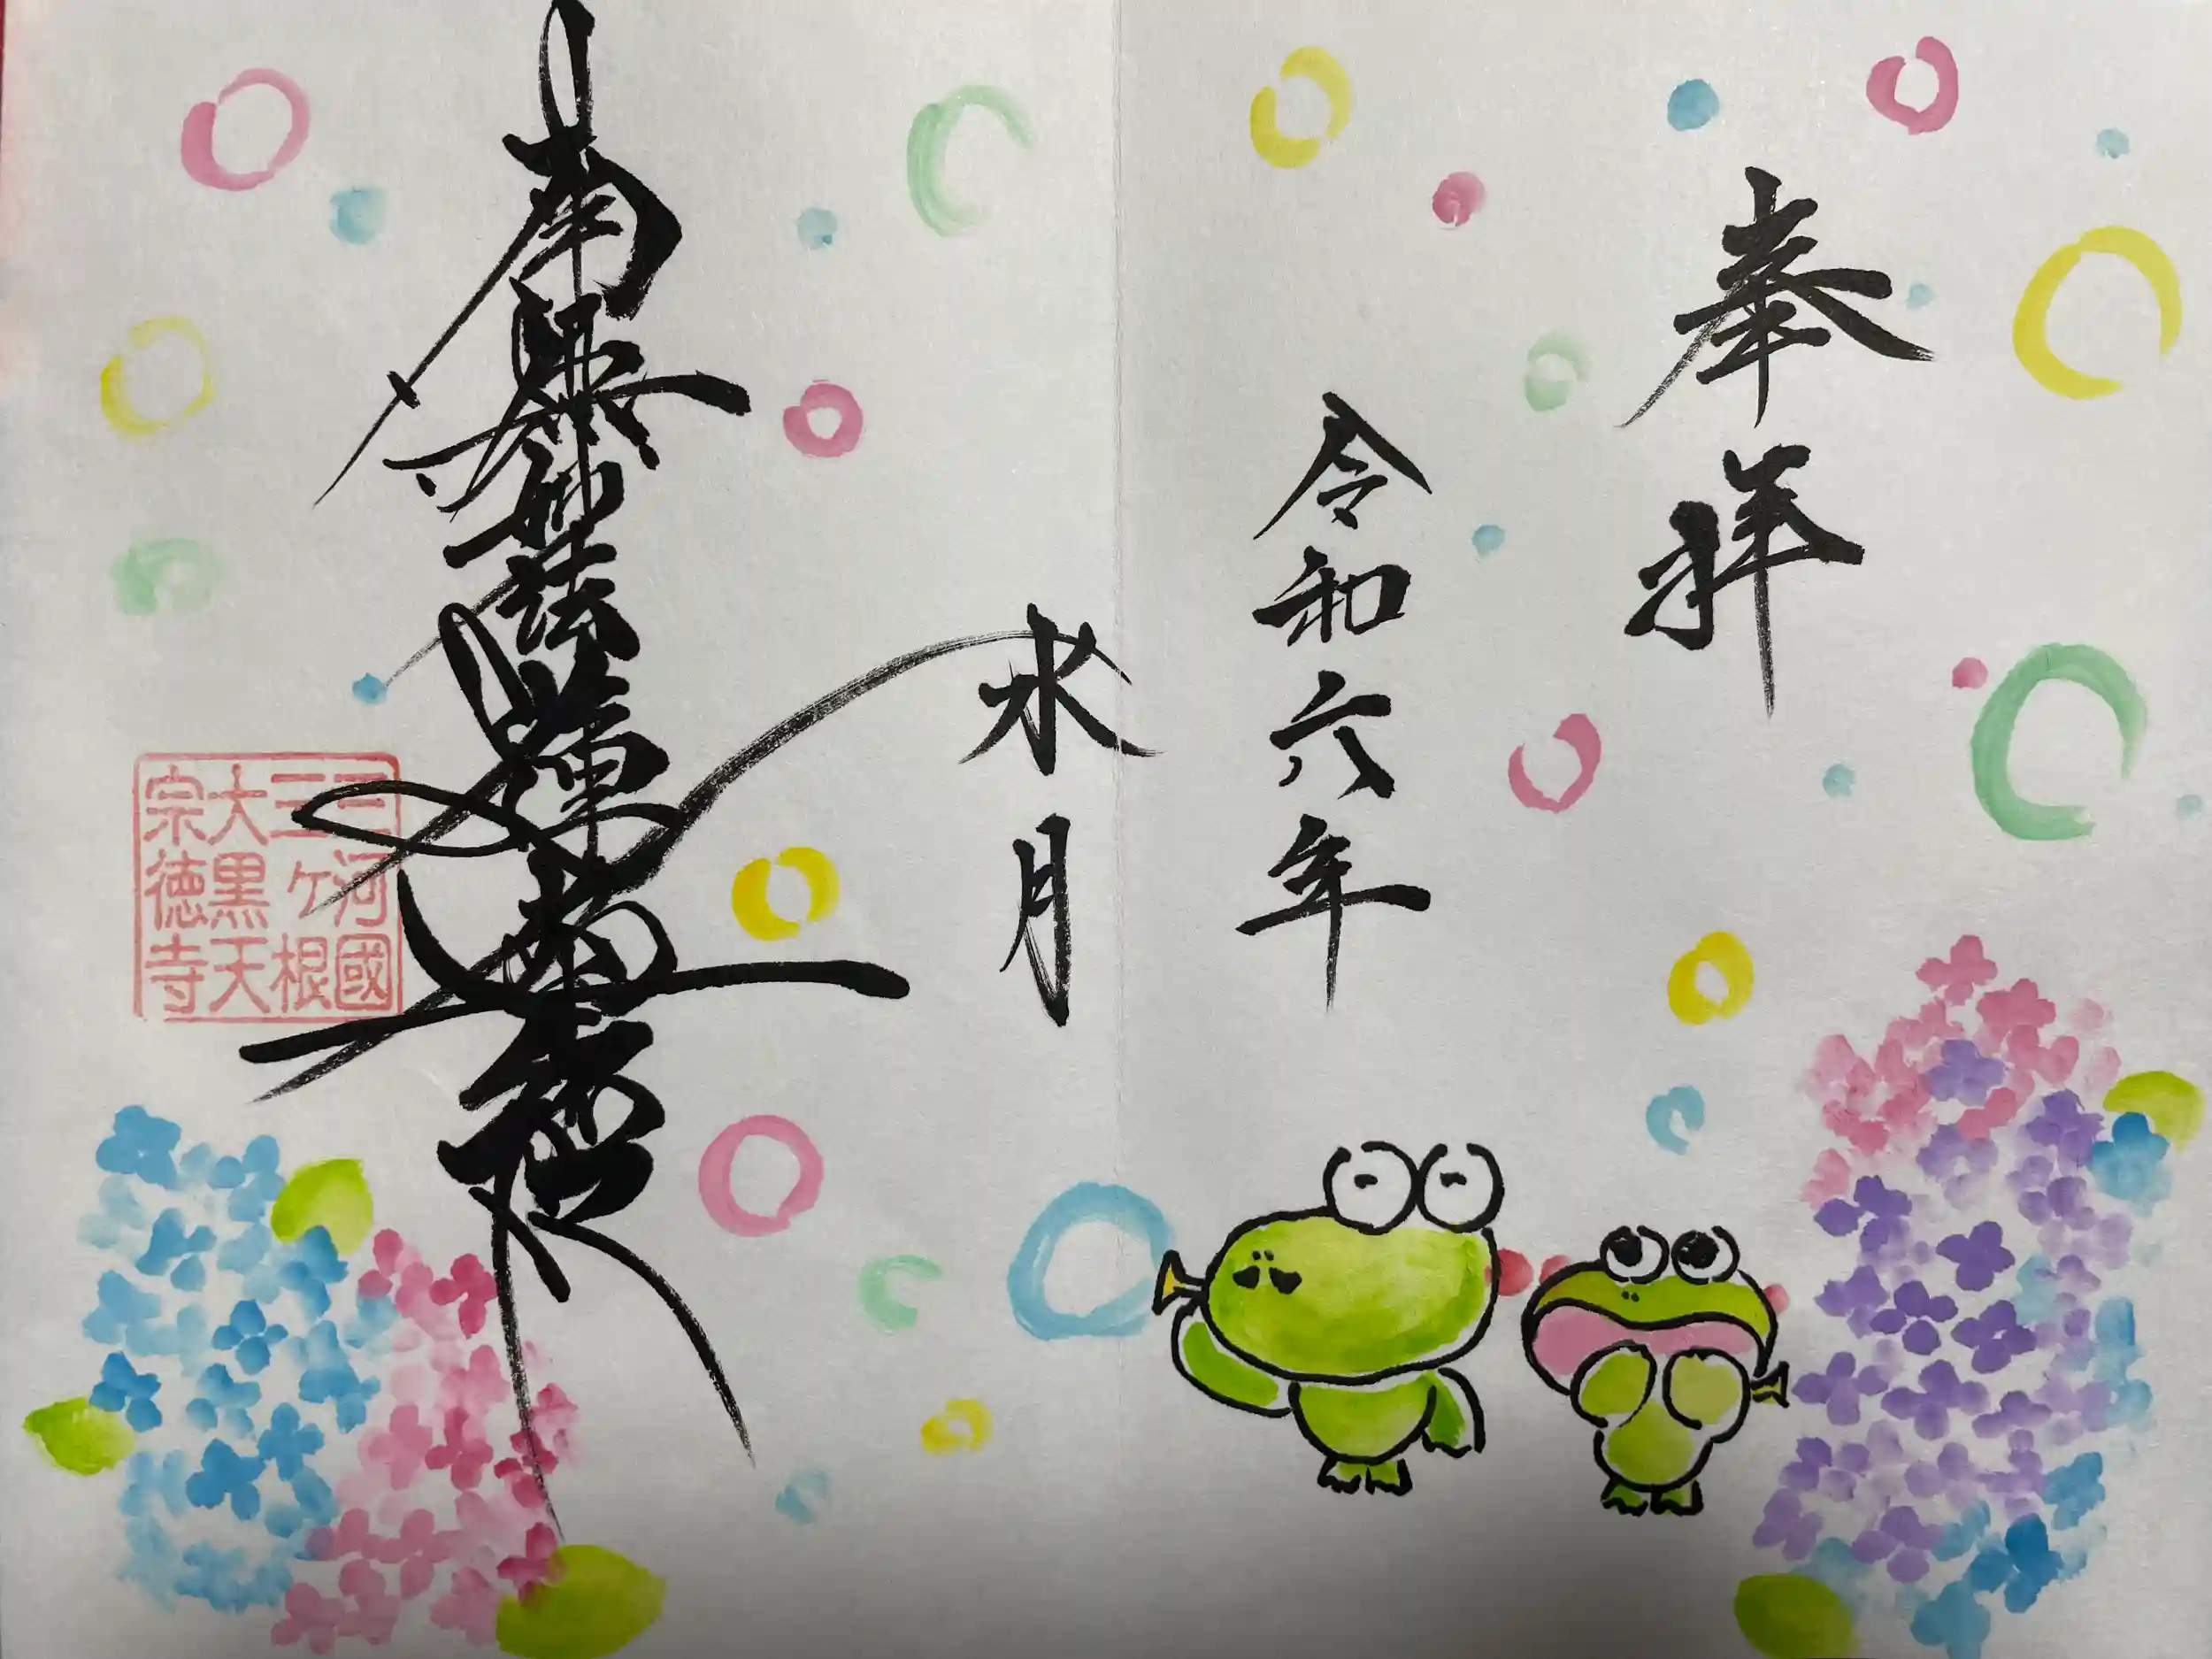 奉拝
令和六年
水月
南無妙法蓮華経
三河國
三ヶ根
大黒天
宗徳寺